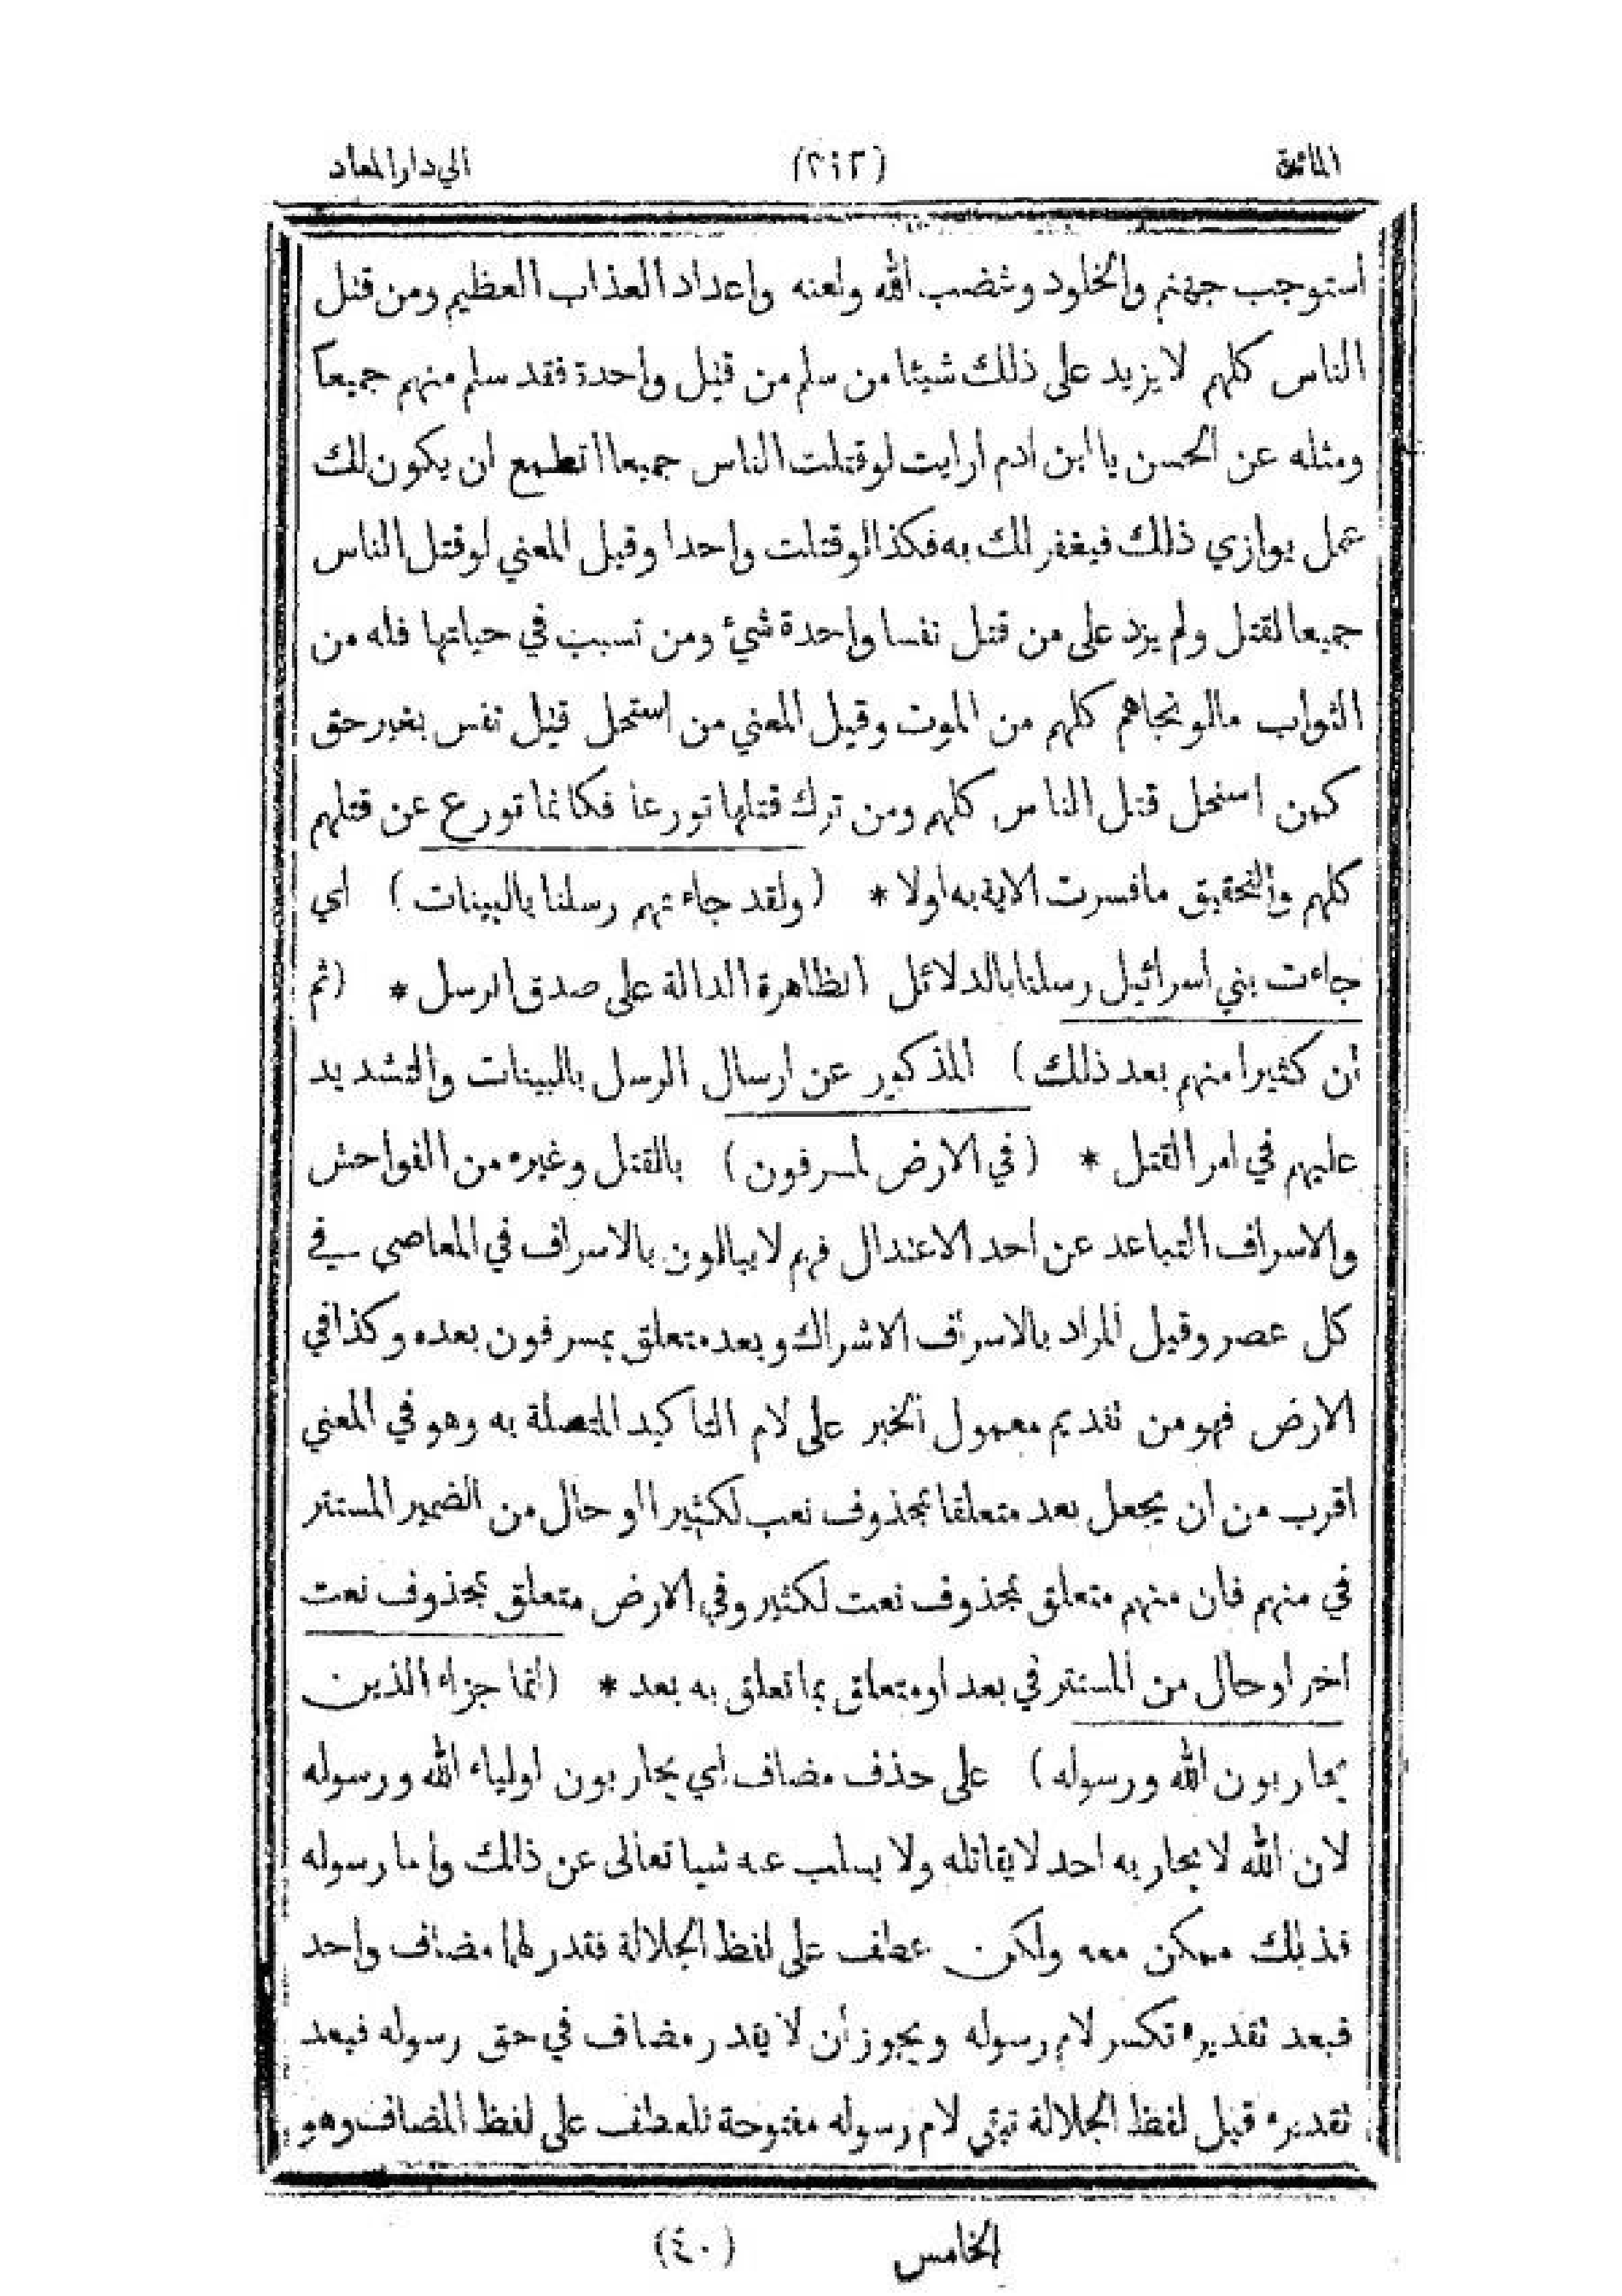 المائدة (٣١٣) الي دار المعاد
استوجب جهنم والخلود وغضب الله ولعنه واعداد العذاب العظيم ومن قتل
الناس كلهم لا يزيد على ذلك شيئا من سلم من قتل واحدة فقد سلم منهم جميعا
ومثله عن الحسن يا ابن ادم ارايت لو قتلت الناس جميعا اتطمع ان يكون لك
عمل يوازي ذلك فيغفر لك به فكذا لو قتلت واحدا وقيل المعني لو قتل الناس
جميعا لقتل ولم يزد على من قتل نفسا واحدة شيئ ومن تسبب في حياتها فله من
الثواب ما لو نجاهم كلهم من الموت وقيل المعني من استحل قتل نفس بغير حق
كمن استحل قتل الناس كلهم ومن ترك قتلها تورعا فكانما تورع عن قتلهم
كلهم والتحقيق ما فسرت الاية به اولا * (ولقد جاءتهم رسلنا بالبينات) اي
جاءت بني اسرائيل رسلنا بالدلائل الظاهرة الدالة على صدق الرسل * (ثم
ان كثيرا منهم بعد ذلك) المذكور عن ارسال الرسل بالبينات والتشديد
عليهم في امر القتل * (في الارض لمسرفون) بالقتل وغيره من الفواحش
والاسراف التباعد عن احد الاعتدال فهم لا يبالون بالاسراف في المعاصي في
كل عصر وقيل المراد بالاسراف الاشراك وبعد متعلق بمسرفون بعده وكذا في
الارض فهو من تقديم معمول الخبر على لام التاكيد المتصلة به وهو في المعني
اقرب من ان يجعل بعد متعلقا بمحذوف نعب لكثيرا او حال من الضمير المستتر
في منهم فان منهم متعلق بمحذوف نعت لكثير وفي الارض متعلق بمحذوف نعت
اخر او حال من المستتر في بعد او متعلق بما تعلق به بعد * (انما جزاء الذين
يحاربون الله ورسوله) على حذف مضاف اي يحاربون اولياء الله ورسوله
لان الله لا يحاربه احد لا يقاتله ولا يسلب عنه شيا تعالى عن ذلك واما رسوله
فذلك ممكن معه ولكن عطف على لفظ الجلالة فقدر لهما مضاف واحد
فبعد تقديره تكسر لام رسوله ويجوز ان لا يقدر مضاف في حق رسوله فبعد
تقديره قبل لفظ الجلالة تبقى لام رسوله مفتوحة للعطف على لفظ المضاف وهو
الخامس (٤٠)